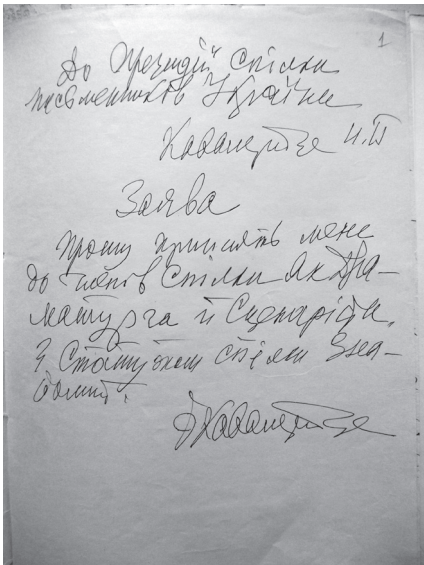 1
До Президії Спілки
письменників України
Кавалерідзе І.П.
Заява
Прошу прийнять мене
до членів Спілки як дра-
матурга й сценаріста.
З статутом спілки зна-
йомий.
Кавалерідзе